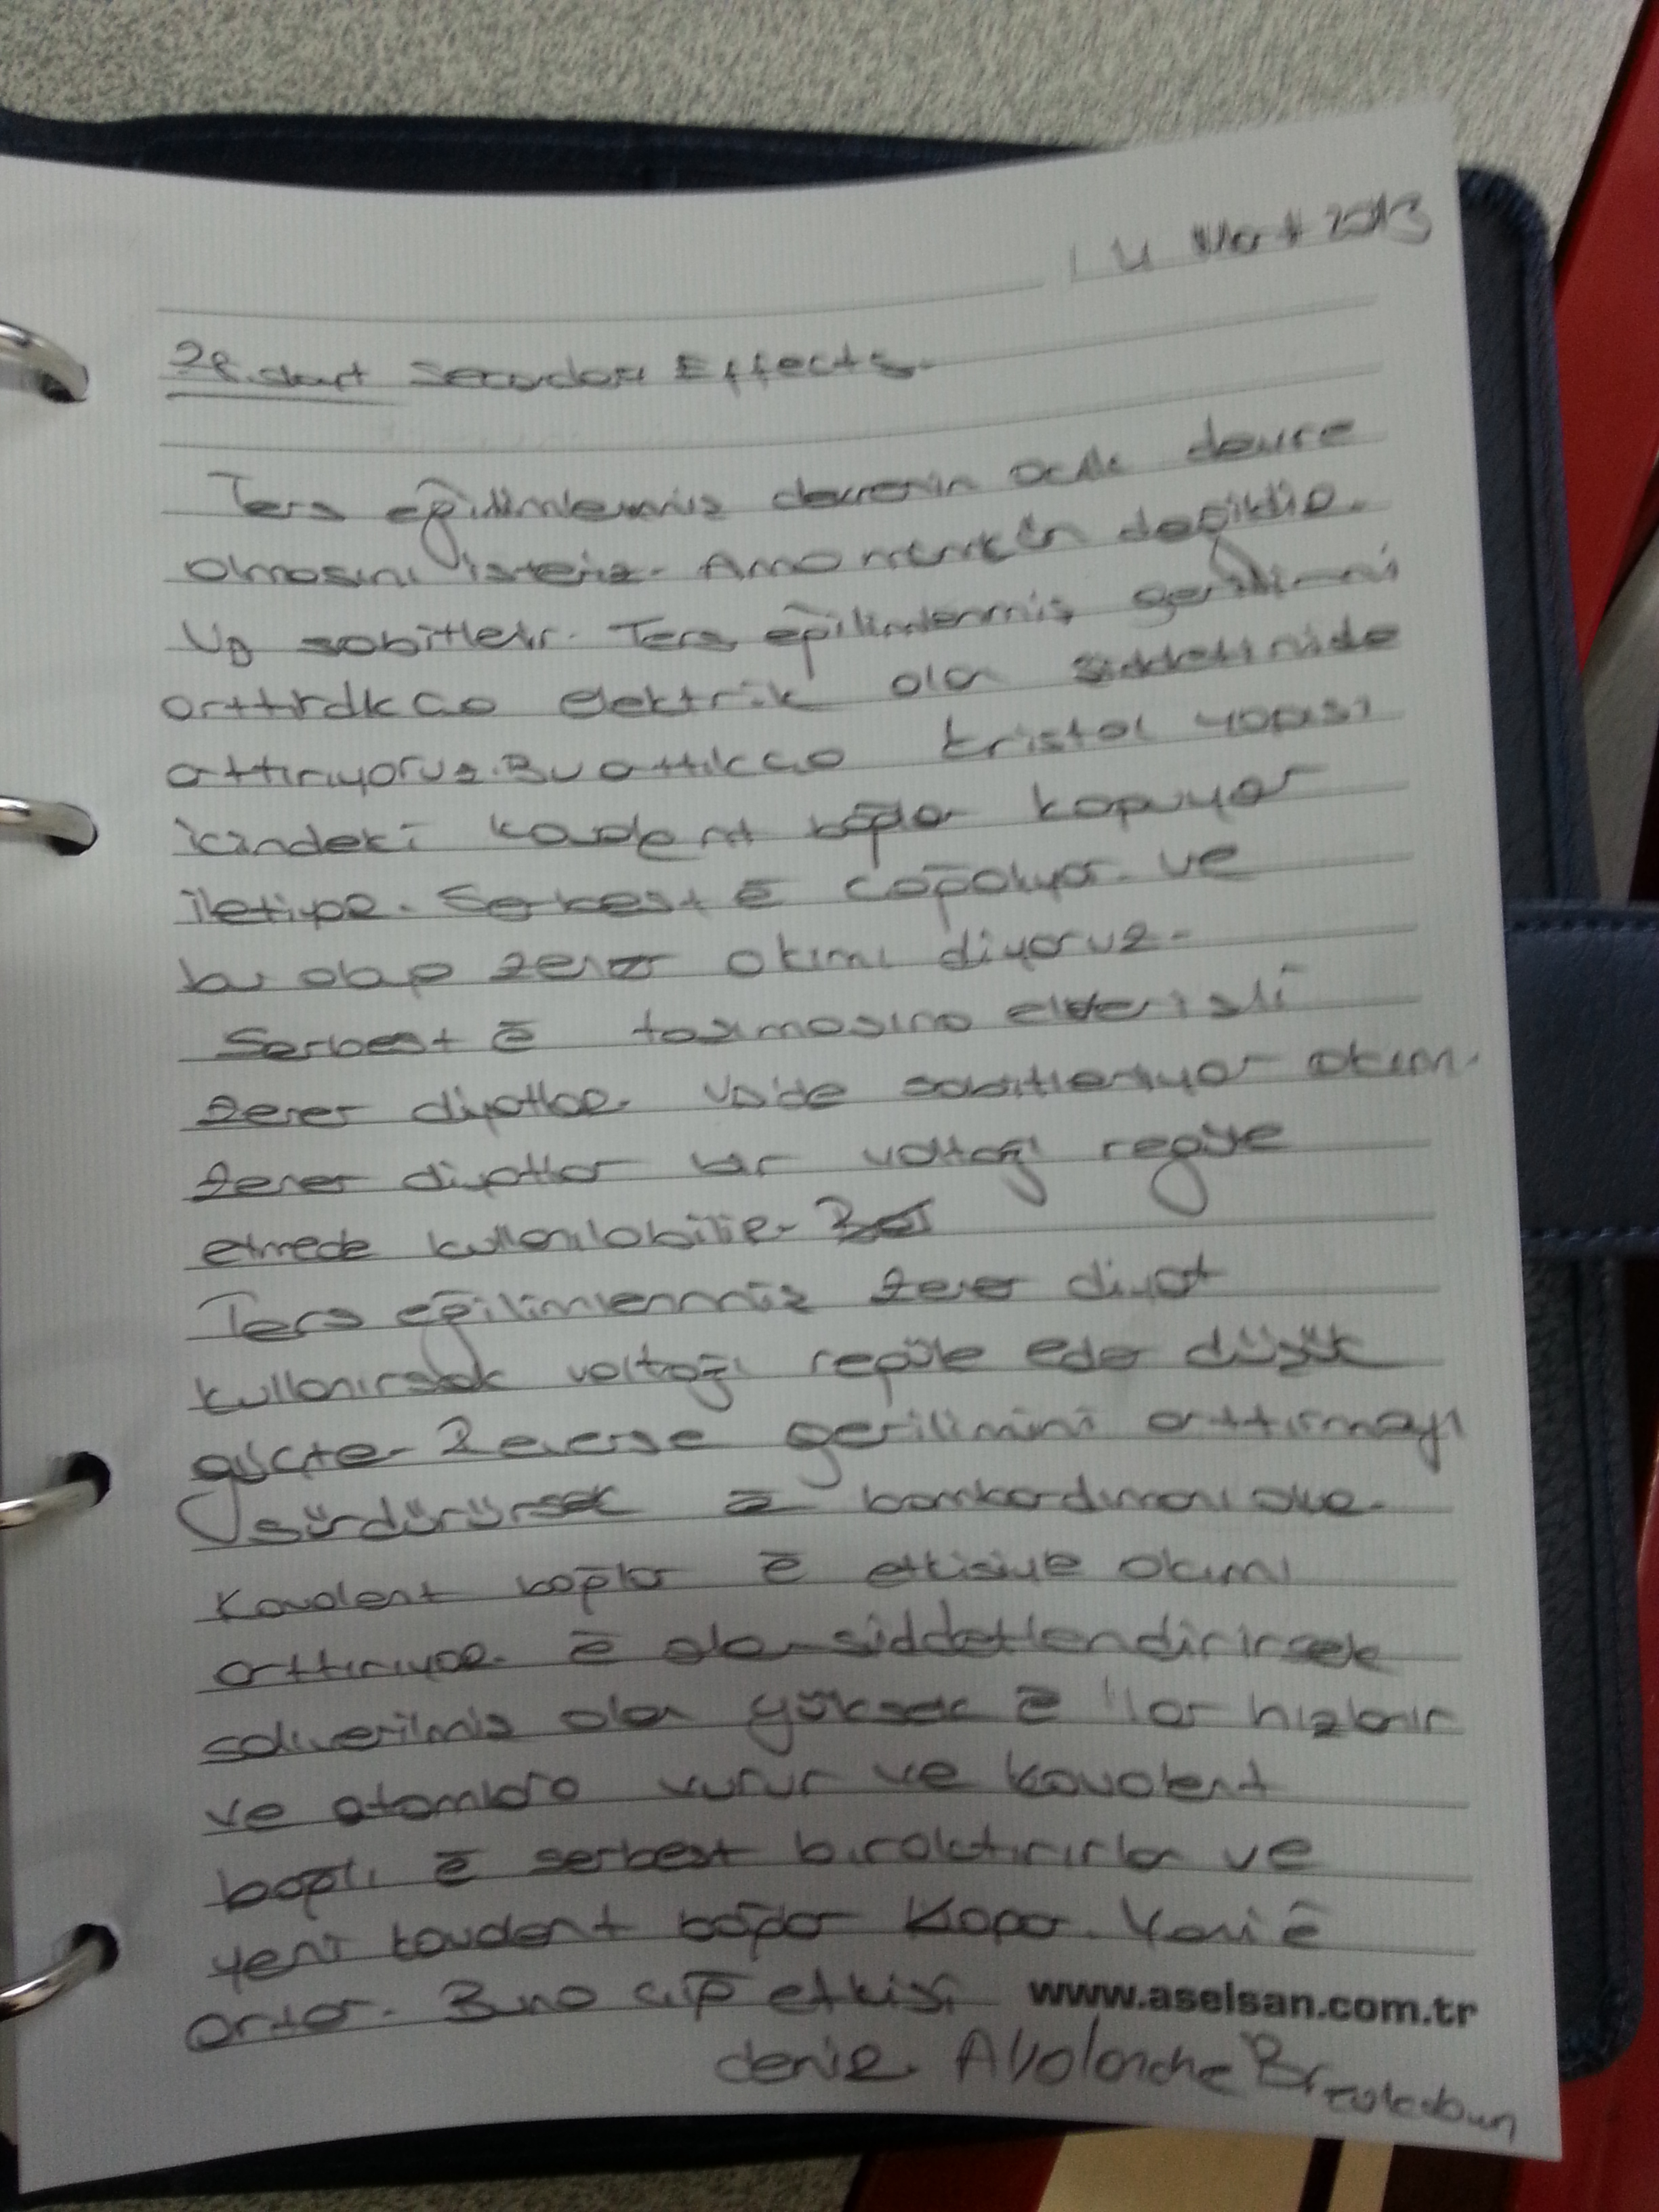 14 Mart 2013
28.slayt Secondary Effects.
Ters eğilimlenmiş devrenin açık devre
olmasını isteriz. Ama mümkün değildir.
VD sabitlenir. Ters eğilimlenmiş gerilimini
arttırdıkça elektrik alan şiddetinide
arttırıyoruz. Bu arttıkça kristal yapısı
içindeki kovalent bağlar kopuyor
iletiyor. Serbest ē çoğalıyor. ve
bu olay zener akımı diyoruz.
Serbest ē taşımasına elverişli
zener diyotlar. VD'de sabitleniyor akım.
zener diyotlar bir voltajı regüle
etmede kullanılabilir.
Ters eğilimlenmiş zener diyot
kullanırsak voltajı regüle eder düşük
güçte. Reverse gerilimini arttırmayı
sürdürürsek ē bombardımanı olur.
Kovalent bağlar ē etkisiyle akımı
arttırıyor. ē alan şiddetlendirirsek
salıverilmiş olan yüksek ē 'lar hızlanır
ve atomlara vurur ve kovalent
bağlı ē serbest bıraktırırlar ve
yeni kovalent bağlar kopar. Yani ē
artar. Buna çığ etkisi
www.aselsan.com.tr
denir. Avalanche Breakdown